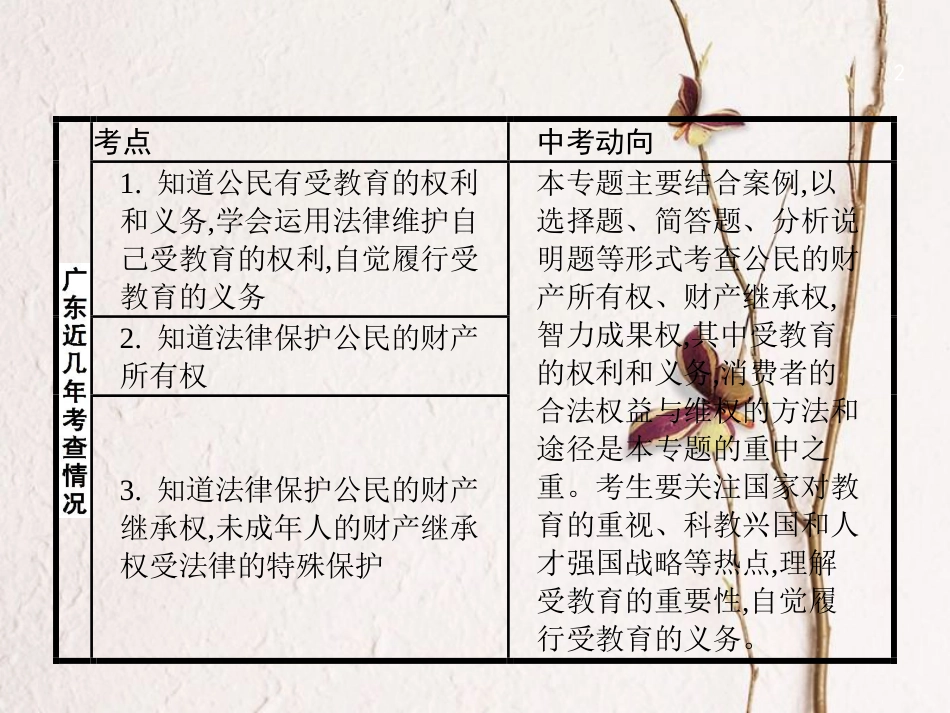 2
考点
中考动向
广东近几年考查情况
1. 知道公民有受教育的权利
和义务,学会运用法律维护自
己受教育的权利,自觉履行受
教育的义务
2. 知道法律保护公民的财产
所有权
3. 知道法律保护公民的财产
继承权,未成年人的财产继承
权受法律的特殊保护
本专题主要结合案例,以
选择题、简答题、分析说
明题等形式考查公民的财
产所有权、财产继承权,
智力成果权,其中受教育
的权利和义务,消费者的
合法权益与维权的方法和
途径是本专题的重中之
重。考生要关注国家对教
育的重视、科教兴国和人
才强国战略等热点,理解
受教育的重要性,自觉履
行受教育的义务。